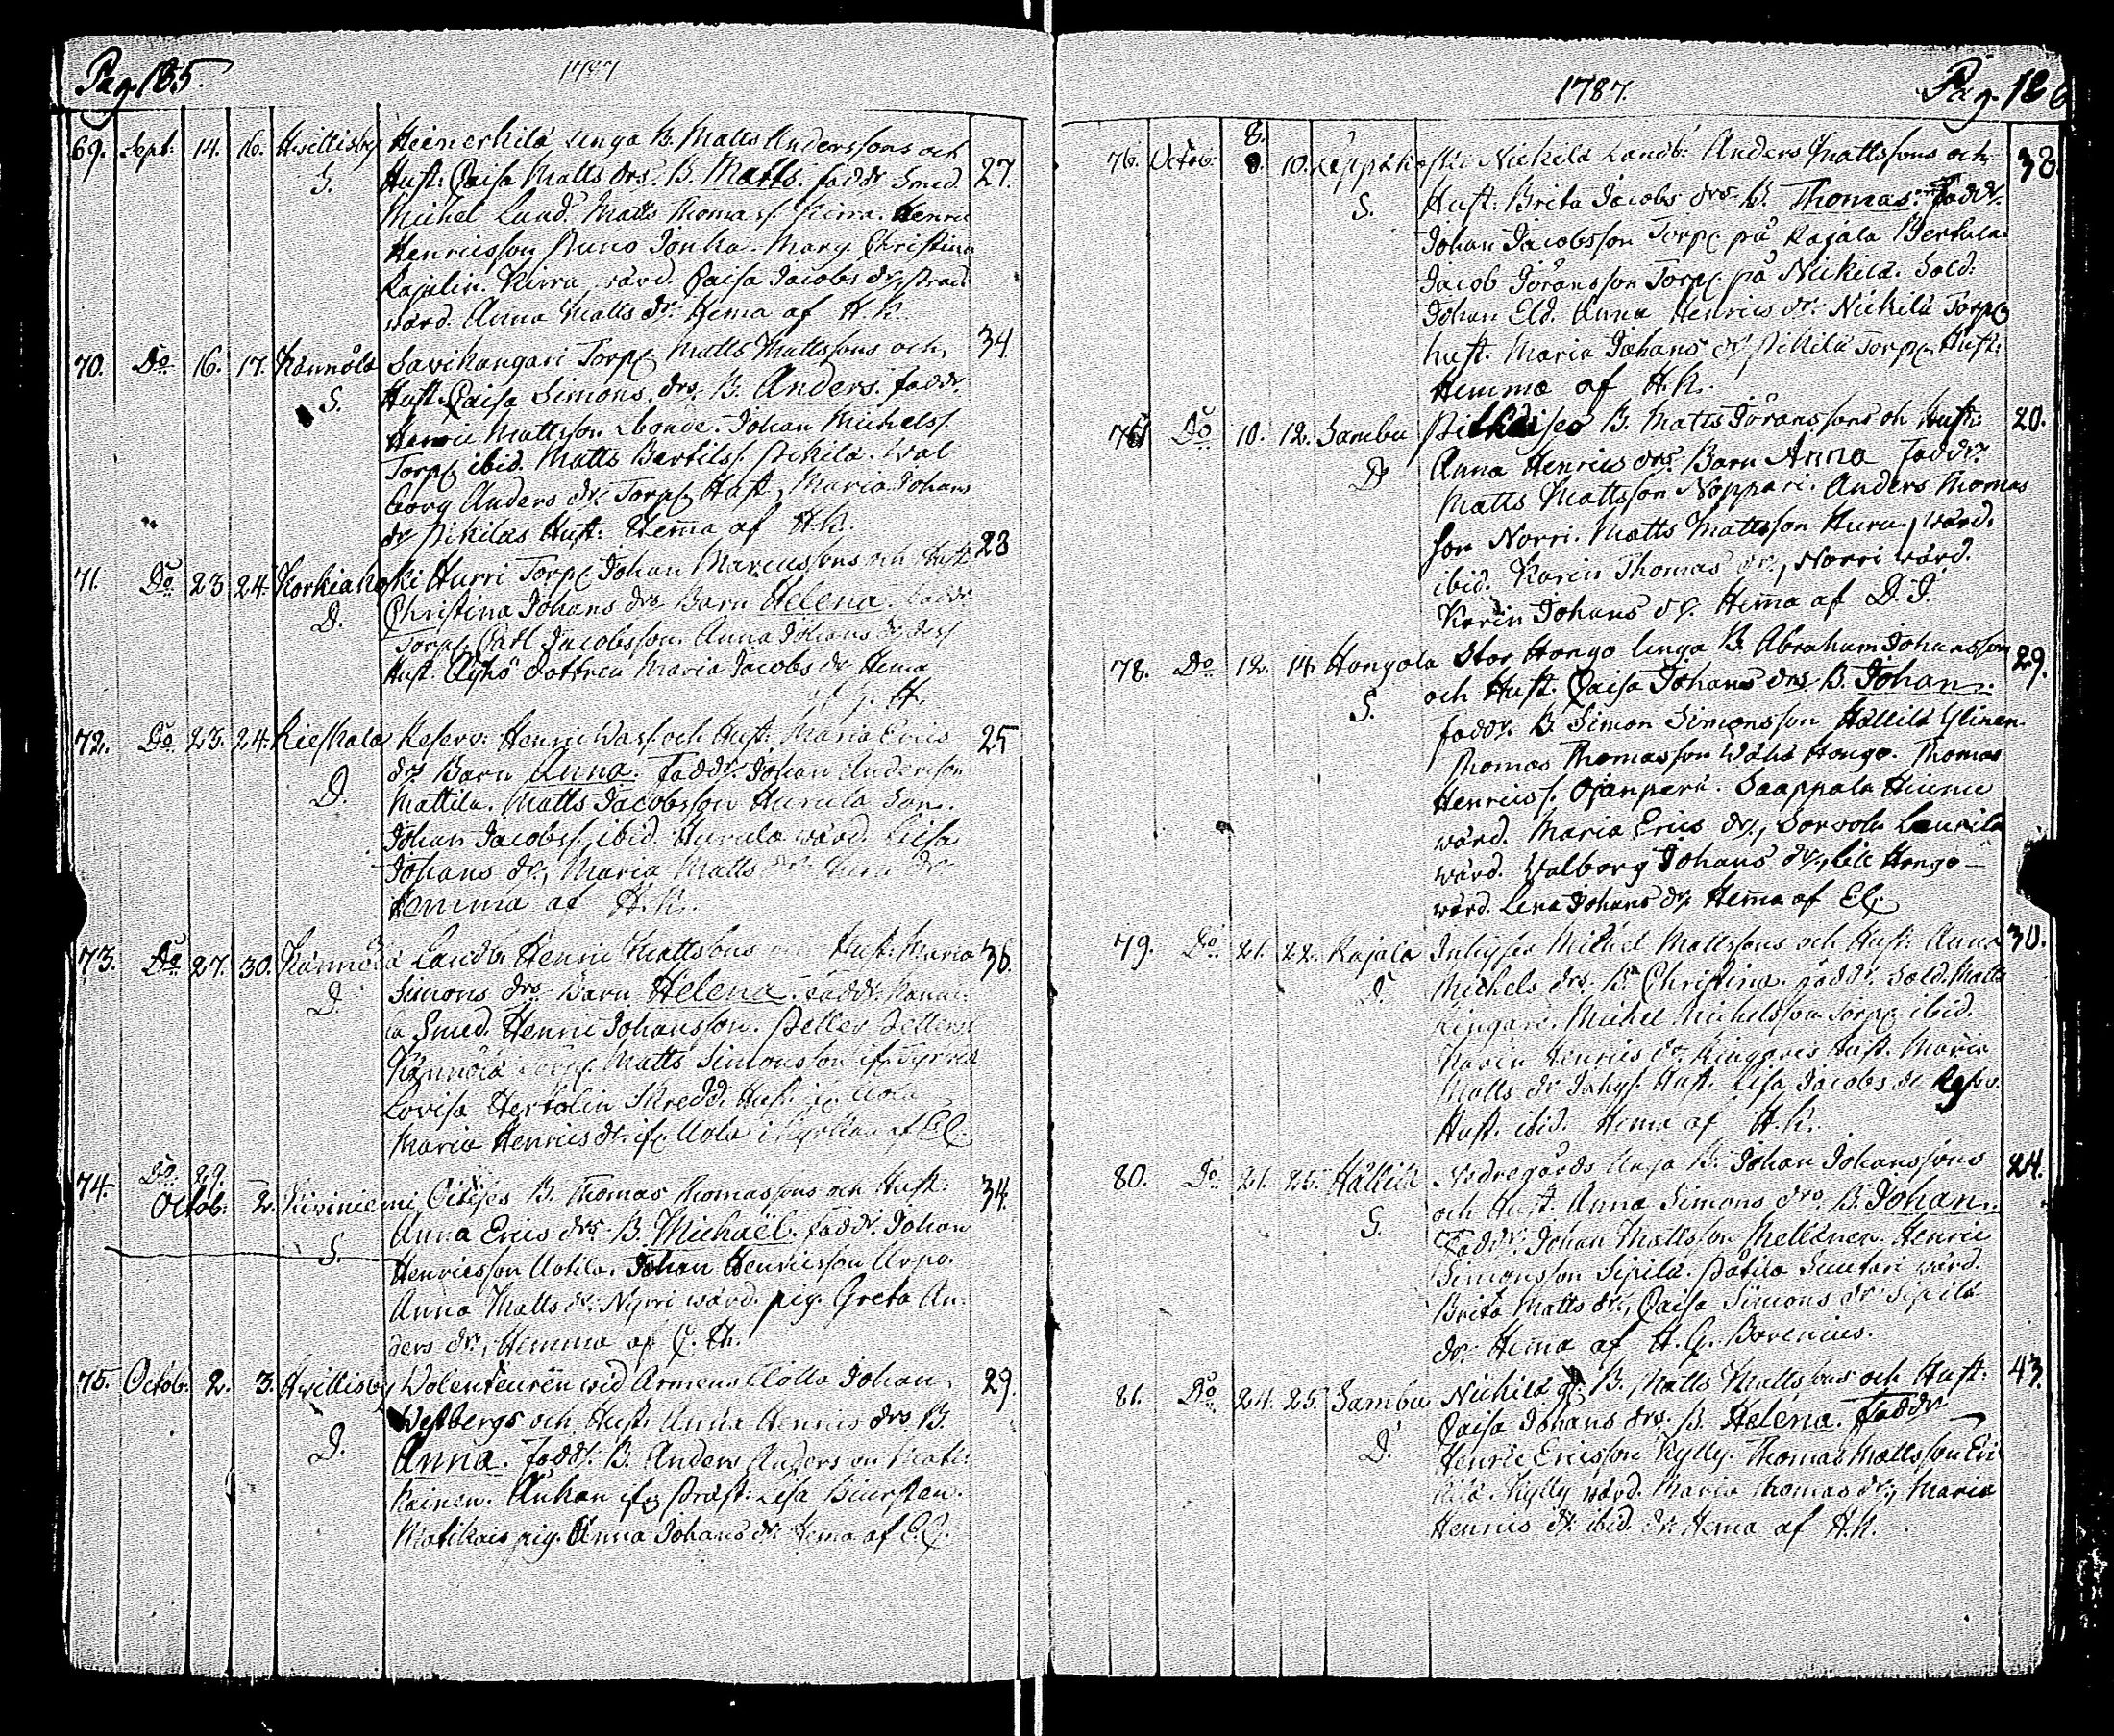 Pag. 185.
1787
69. Sept: 14. 16. Hwittisby Heinerkilä unga B. Matts Anderssons och 27.
S. Hust: Caisa Matts drs. B. Matts. faddr Smed.
Michel Lund. Matts Thomass. Kirra. Henric
Henricsson Puno Jonka. Marg. Christina
Rajalin. Kirra wärd. Caisa Jacobs dr,
wärd. Anna Matts dr. Hema af H. K.
70. Do 16. 17. Kännölä Savikangari Torp. Matts Mattssons och 34.
S. Hust. Caisa Simons drs. B. Anders. faddr
Henric Mattsson bonde. Johan Michelss.
Torp. ibid. Matts Bertilss. Pikilä. Wal
borg Anders dr. Torp. Hust, Maria Johans
dr Pikiläs Hust: Hema af H. K.
71. Do 23 24. Korkiakoski Hurri Torp. Johan Marcussons och Hust 23
D. Christina Johans drs Barn Helena. faddr.
Torp. Carl Jacobsson. Anna Johans dr dess
Hust. Äyhö dottren Maria Jacobs dr Hema
H.
72. Do 23. 24. Rieskala Reserv: Henric Wass och Hust: Maria Erics 25
D. drs Barn Anna. Faddr. Johan Andersson
Mattila. Matts Jacobsson Hurula Son.
Johan Jacobss. ibid. Hurula wärd. Lisa
Johans dr, Maria Matts dr. dr
Hemma af H. K.
73. Do 27. 30. Kännölä Landb. Henric Mattssons Hust: Maria 36.
D. Simons drs. Barn Helena. faddr.
Smed. Henric Johansson. Petter
Kännölä Torp. Matts Simonsson if. Tyrvis
Lovisa Hertolin Skredd. Hust:
Maria Henrics dr. if. Uola i Kyrkan af E C.
74. Do 29.
Octob: 2. Kiviniemi B. Thomas Thomassons och Hust: 34.
S. Anna Erics drs. B. Michaël. faddr Johan
Henricsson Uotila. Johan Henricsson Arpo.
Anna Matts dr. Nyrri wärd. pig. Greta An-
ders dr, Hemma af C. Th.
75. Octob. 2. 3. Hwittisby Wolenteuren wid Armens flotta Johan 29.
Westbergs och Hust. Anna Henrics drs. B.
D. Anna. faddr. B. Anders Anderson Mati-
kainen. Lisa
Matikais pig. Anna Johans dr. Hema af E.C.
1787. Pag. 186
8.
76. Octob: 8. 10. Leppäkoski Nickilä Landb: Anders Mattssons och 38.
S. Hust. Brita Jacobs drs. B. Thomas. Faddr.
Johan Jacobsson Torp. på Rajala Bertula
Jacob Jöransson Torp. på Nickilä. Sold.
Johan Eld. Anna Henrics dr. Nickilä Torp
hust. Maria Johans dr Pikilä Torp. Hust.
Hemma af H. K.
Do 10. 12. Sambu B. Matts Jöranssons och Hust: 20.
D Anna Henrics drs. Barn Anna Faddr.
Matts Mattsson Noppari. Anders Thomas
son Norri. Matts Mattsson Huru, wärd.
ibid. Karin Thomas dr, Norri wärd.
Karin Johans dr. Hema af D. J.
78. Do 12. 14. Hongola Stor Hongo unga B. Abraham Johansson 29.
S. och Hust. Caisa Johans drs B. Johan.
faddr. B. Simon Simonsson Hållilä Ylinen.
Thomas Thomasson Wähä Hongo. Thomas
Henricss. Ojanperä. Saappala Hiimu
wärd. Maria Erics dr, Sorvola Laurila
wärd. Walborg Johans dr, Lill Hongo
wärd. Lena Johans dr. Hema af E C.
79. Do 21. 22. Rajala Michel Mattssons och Hust: Anna 30.
D. Michels drs. B. Christina. faddr. Sold. Matts
Kingari. Michel Michelsson Torp. ibid.
Karin Henrics dr. Kingaris Hust. Maria
Matts dr Hust. Lisa Jacobs dr
Hust. ibid. Hema af H. K.
80. Do 21. 25. Hållilä Nedregårds unga B. Johan Johanssons 24.
S. och Hust. Anna Simons drs B. Johan.
Faddr. Johan Mattsson Mellänen. Henric
Simonsson Sipilä. Påtila Suutari wärd.
Brita Matts dr, Caisa Simons dr Sipilä
dr. Hema af H. G. Borenius.
81. Do 24. 25. Sambu Nickilä B. Matts Mattssons och Hust: 43.
D. Caisa Johans drs. B. Helena. Faddr
Henric Ericsson Kylly. Thomas Mattsson Eri
kilä. Kylly wärd. Maria Thomas dr, Maria
Henrics dr. ibid. dr. Hema af H. K.